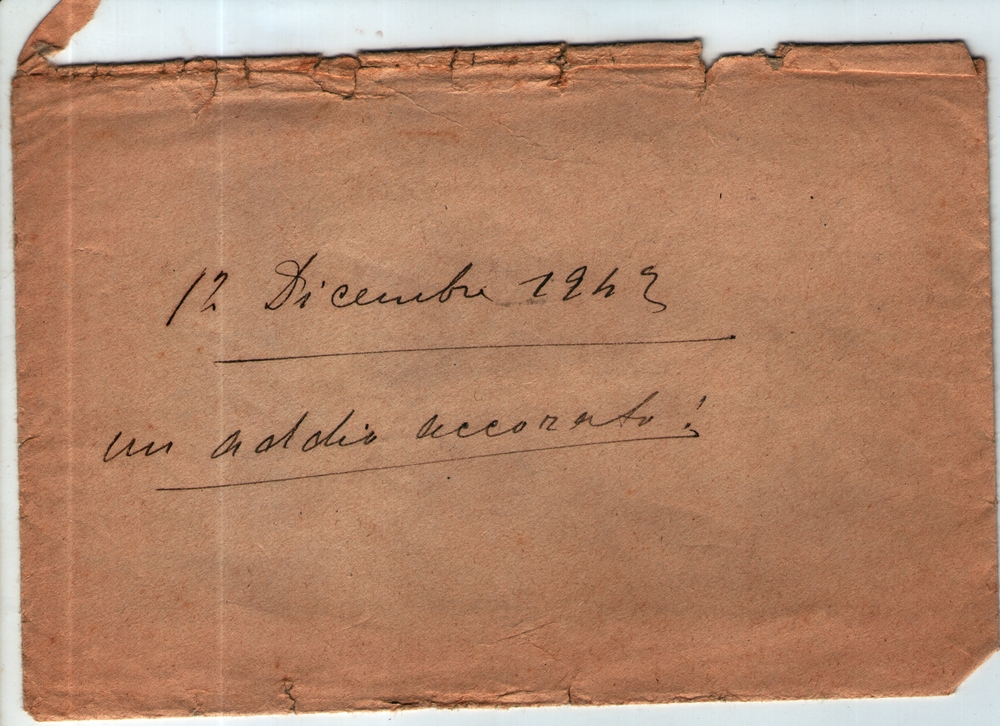 12 Dicembre 1942
un addio accorato!